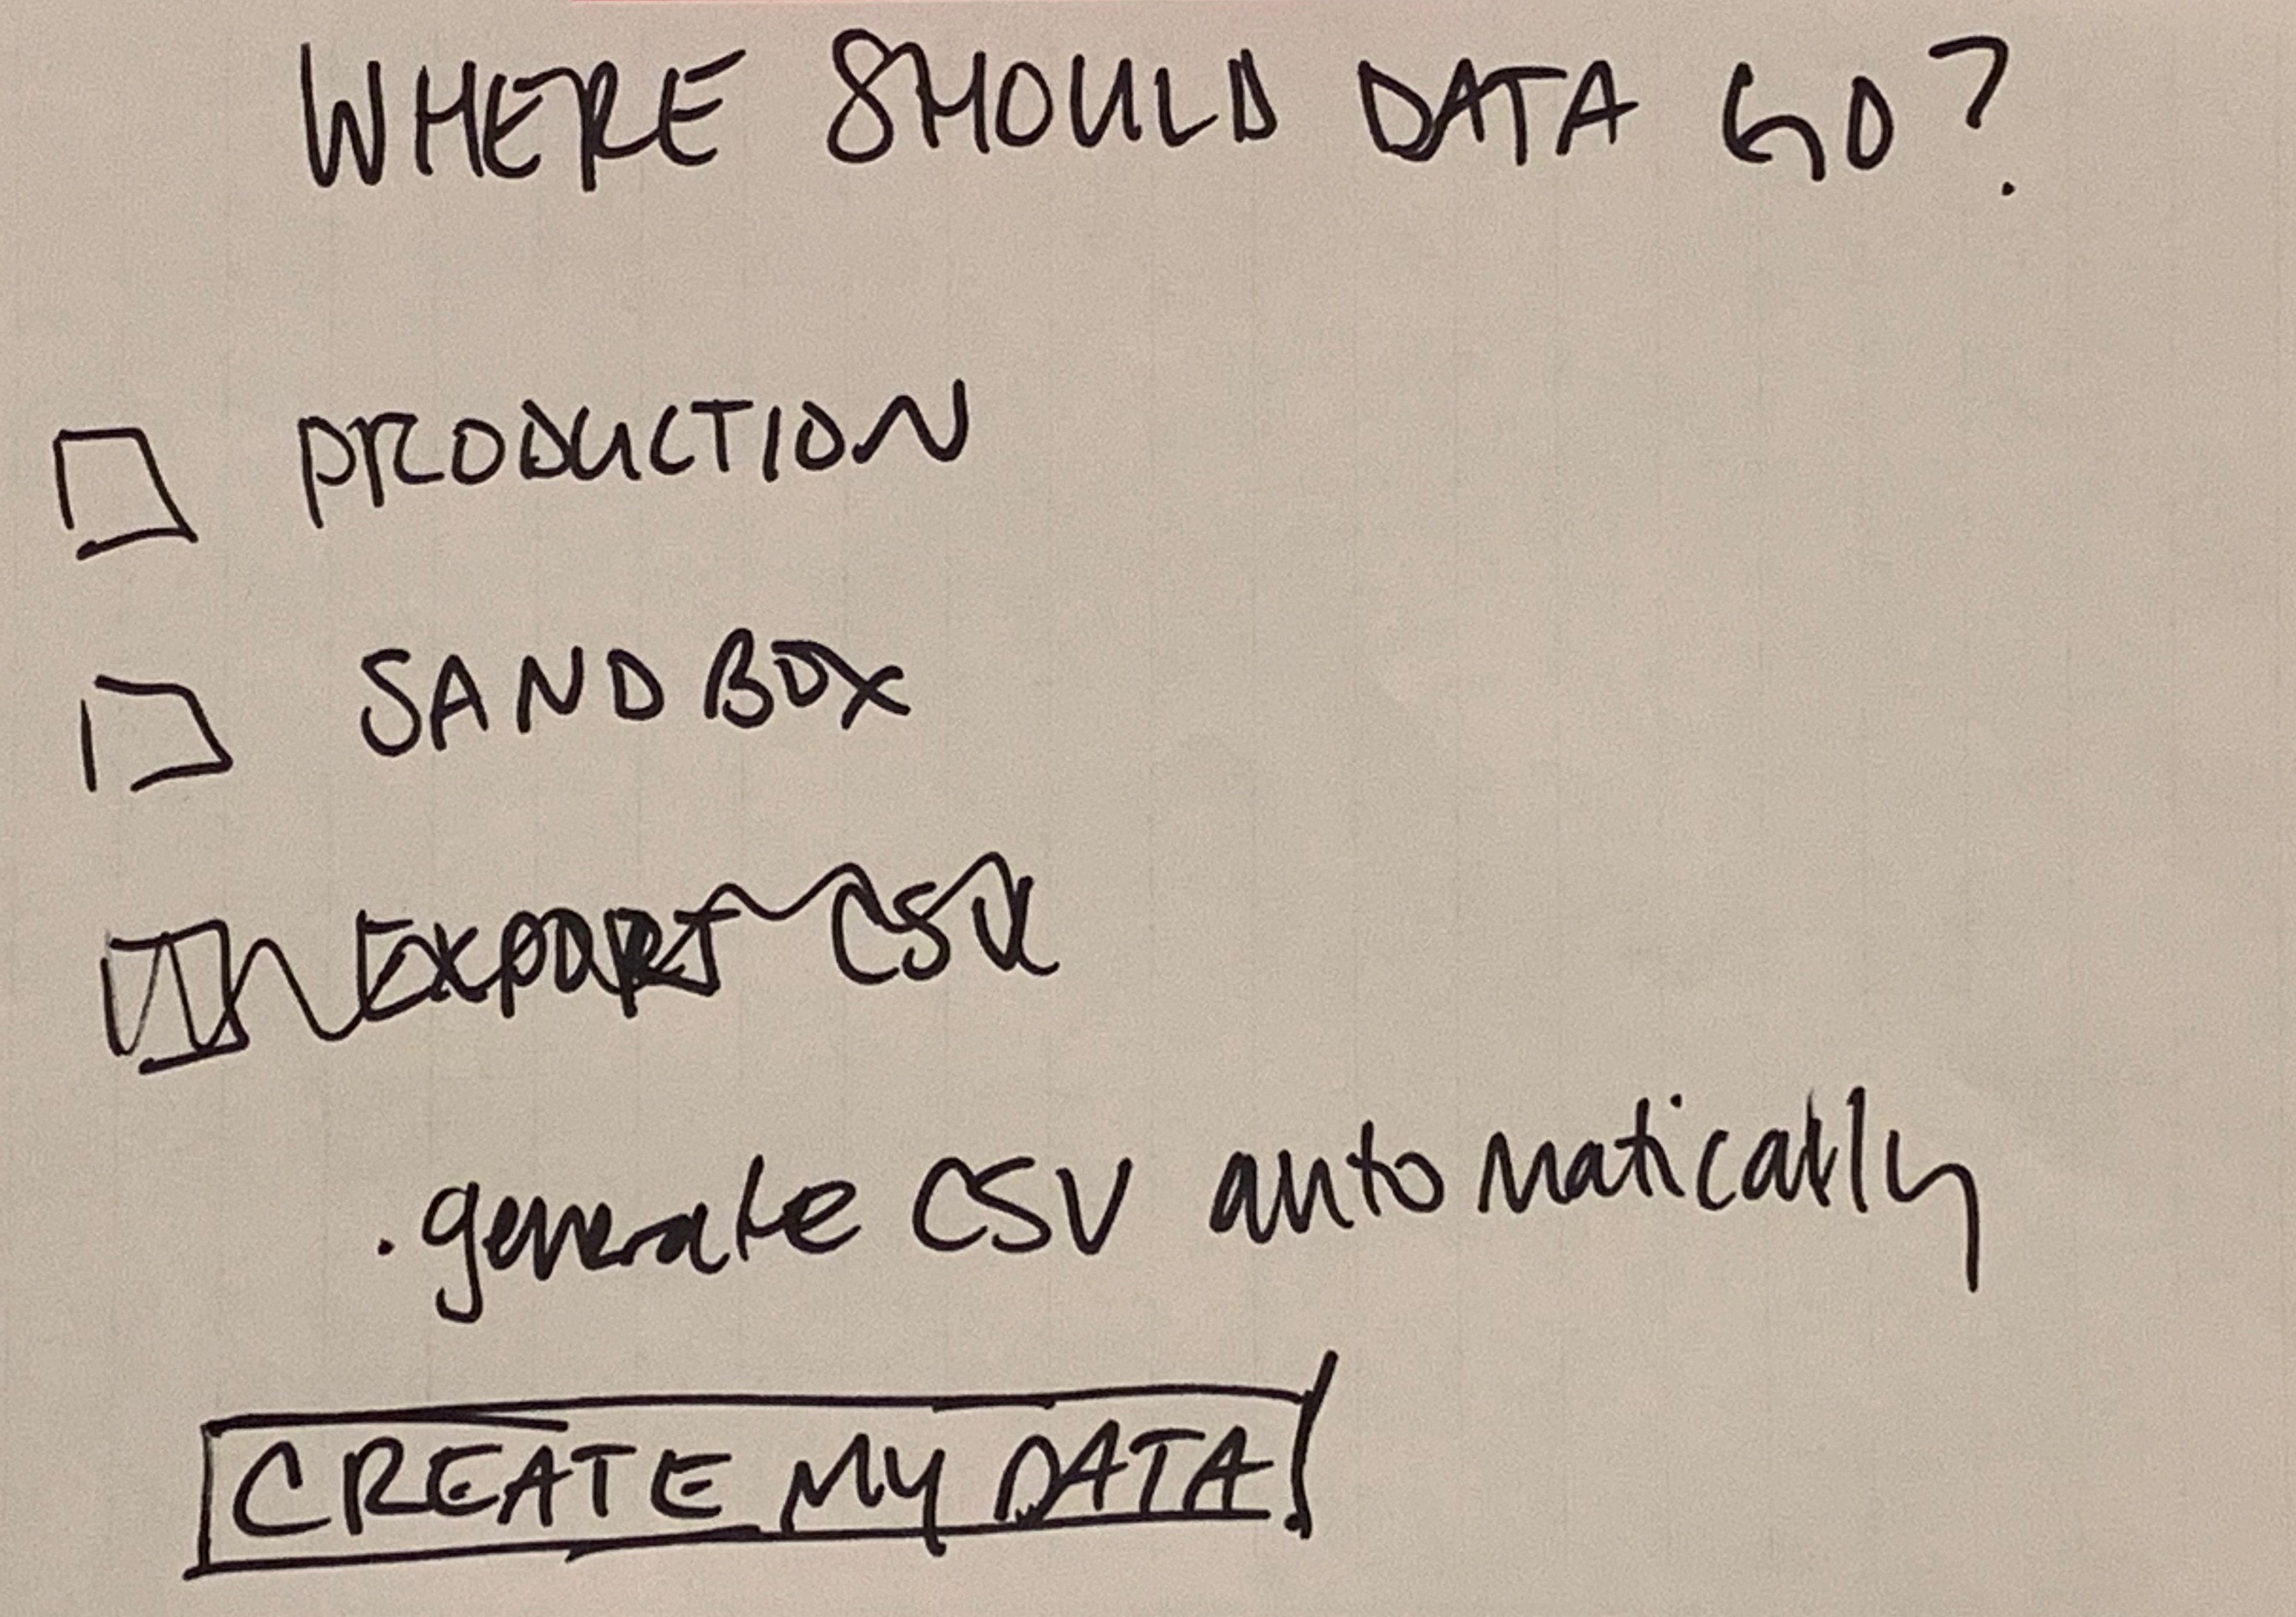 WHERE SHOULD DATA GO?
PRODUCTION
SANDBOX
EXPORT CSV
. generate CSV automatically
CREATE MY DATA